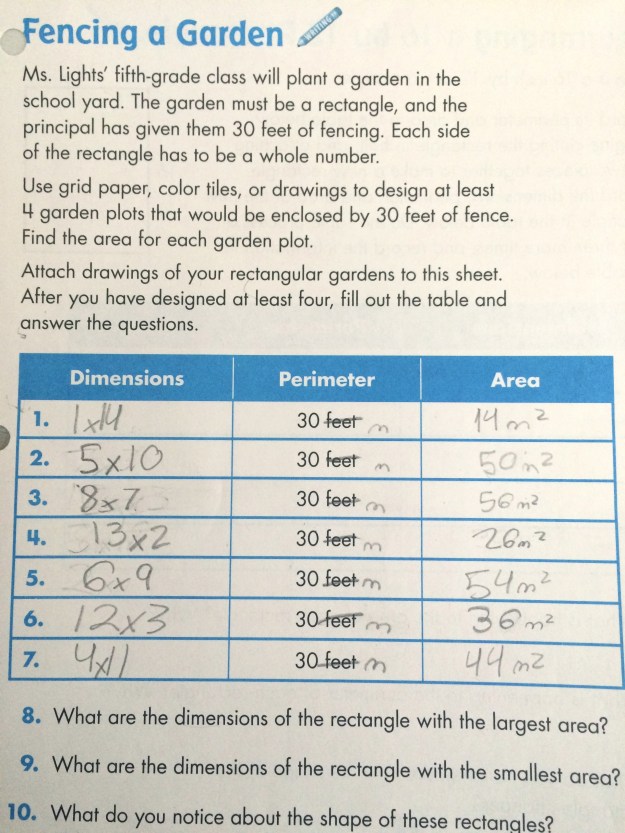 Fencing a Garden WRITING
Ms. Lights’ fifth-grade class will plant a garden in the
school yard. The garden must be a rectangle, and the
principal has given them 30 feet of fencing. Each side
of the rectangle has to be a whole number.
Use grid paper, color tiles, or drawings to design at least
4 garden plots that would be enclosed by 30 feet of fence.
Find the area for each garden plot.
Attach drawings of your rectangular gardens to this sheet.
After you have designed at least four, fill out the table and
answer the questions.
Dimensions Perimeter Area
1. 1x14 30 feet m 14 m²
2. 5x10 30 feet m 50 m²
3. 8x7 30 feet m 56 m²
4. 13x2 30 feet m 26 m²
5. 6x9 30 feet m 54 m²
6. 12x3 30 feet m 36 m²
7. 4x11 30 feet m 44 m²
8. What are the dimensions of the rectangle with the largest area?
9. What are the dimensions of the rectangle with the smallest area?
10. What do you notice about the shape of these rectangles?